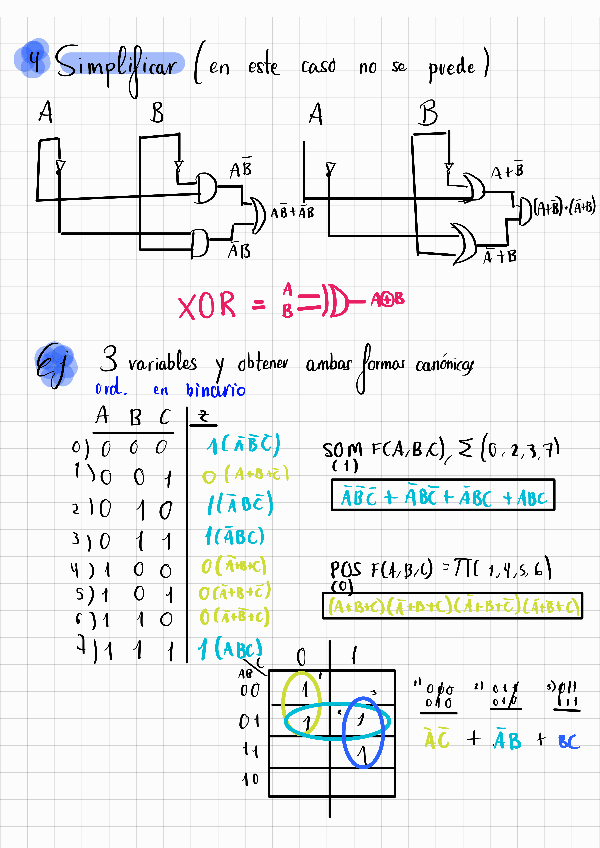 4 Simplificar (en este caso no se puede)
A B A B
AB̅ A+B̅
AB̅+A̅B (A+B̅)·(A̅+B)
A̅B A̅+B
XOR = A B A⊕B
Ej 3 variables y obtener ambas formas canónicas
ord. en binario
A B C z
0) 0 0 0 1(A̅B̅C̅)
1) 0 0 1 0(A+B+C̅)
2) 0 1 0 1(A̅BC̅)
3) 0 1 1 1(A̅BC)
4) 1 0 0 0(A̅+B+C)
5) 1 0 1 0(A̅+B+C̅)
6) 1 1 0 0(A̅+B̅+C)
7) 1 1 1 1(ABC)
SOM F(A,B,C), Σ(0,2,3,7)
(1)
A̅B̅C̅ + A̅BC̅ + A̅BC + ABC
POS F(A,B,C) = Π(1,4,5,6)
(0)
(A+B+C)(A̅+B+C)(A̅+B+C̅)(A̅+B̅+C)
C
AB 0 1
00 1
01 1 1
11 1
10
1) 000 2) 010 3) 011
010 010 111
A̅C̅ + A̅B + BC